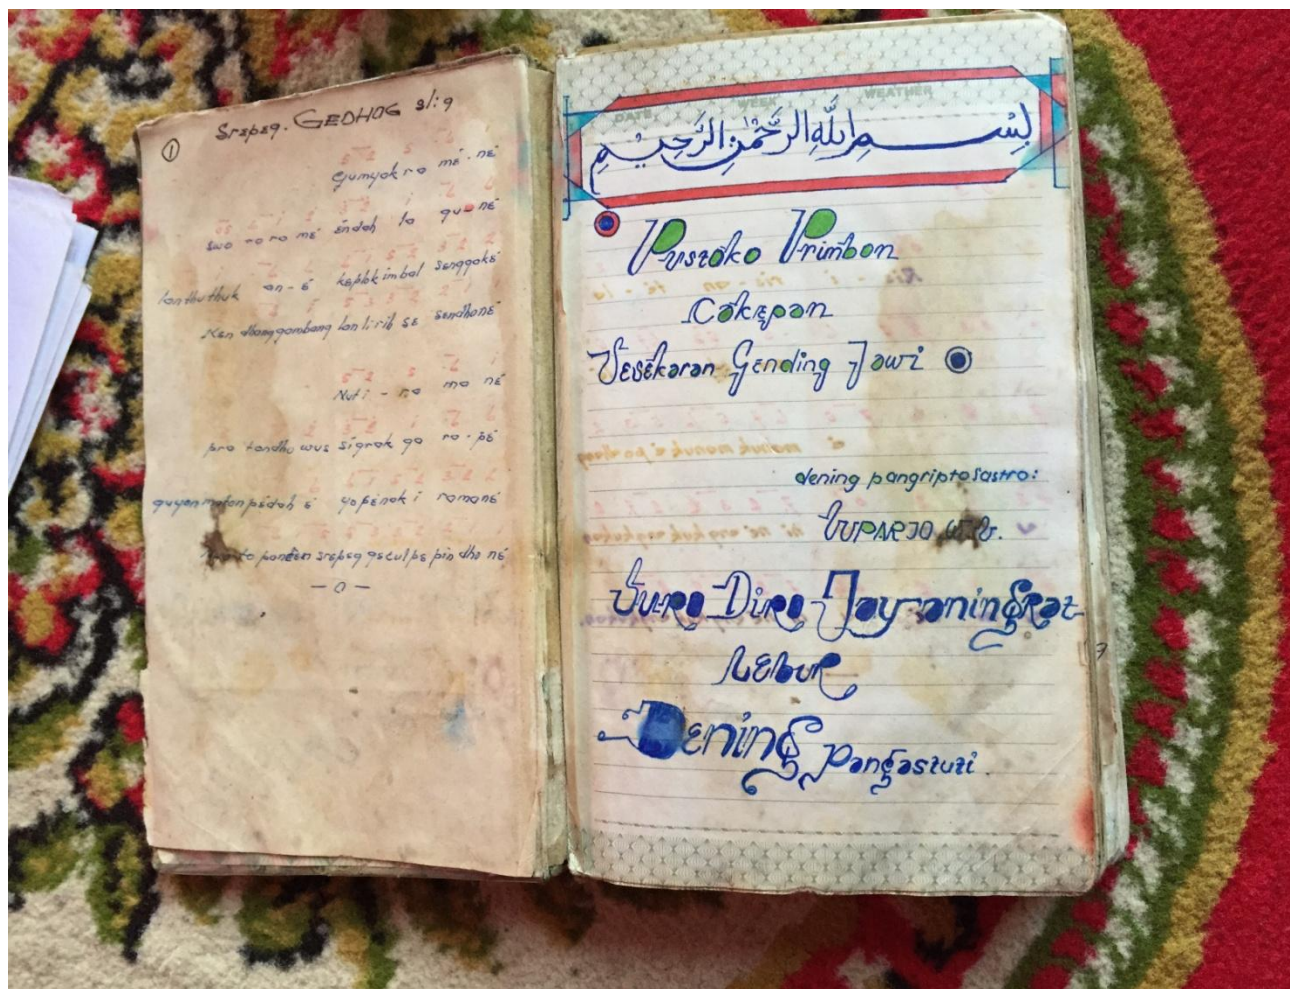 ① Srepeg. GEDHOG sl:9
Gumyak ra mé-né
swo ro ro mé éndah la gu-né
lanthuthuk an-é kaplok imbal senggaké
Ken dhang gambang lan lirih se sendhoné
Nuti-ro mo né
pro tandhu wus sigrak ga ro-pé
guyon maton pédah é yo pénak i ramané
to pandén srepeg gsculpe pin dho né
— o —
DATE WEEK WEATHER
بِسْمِ اللَّهِ الرَّحْمَنِ الرَّحِيمِ
Pustoko Primbon
Cakepan
Sesekaran Gending Jawi
dening pangripto sastro:
SUPARJO W.S.
Suro Diro Joy-aningrat
Lebur
Dening Pangastuti.